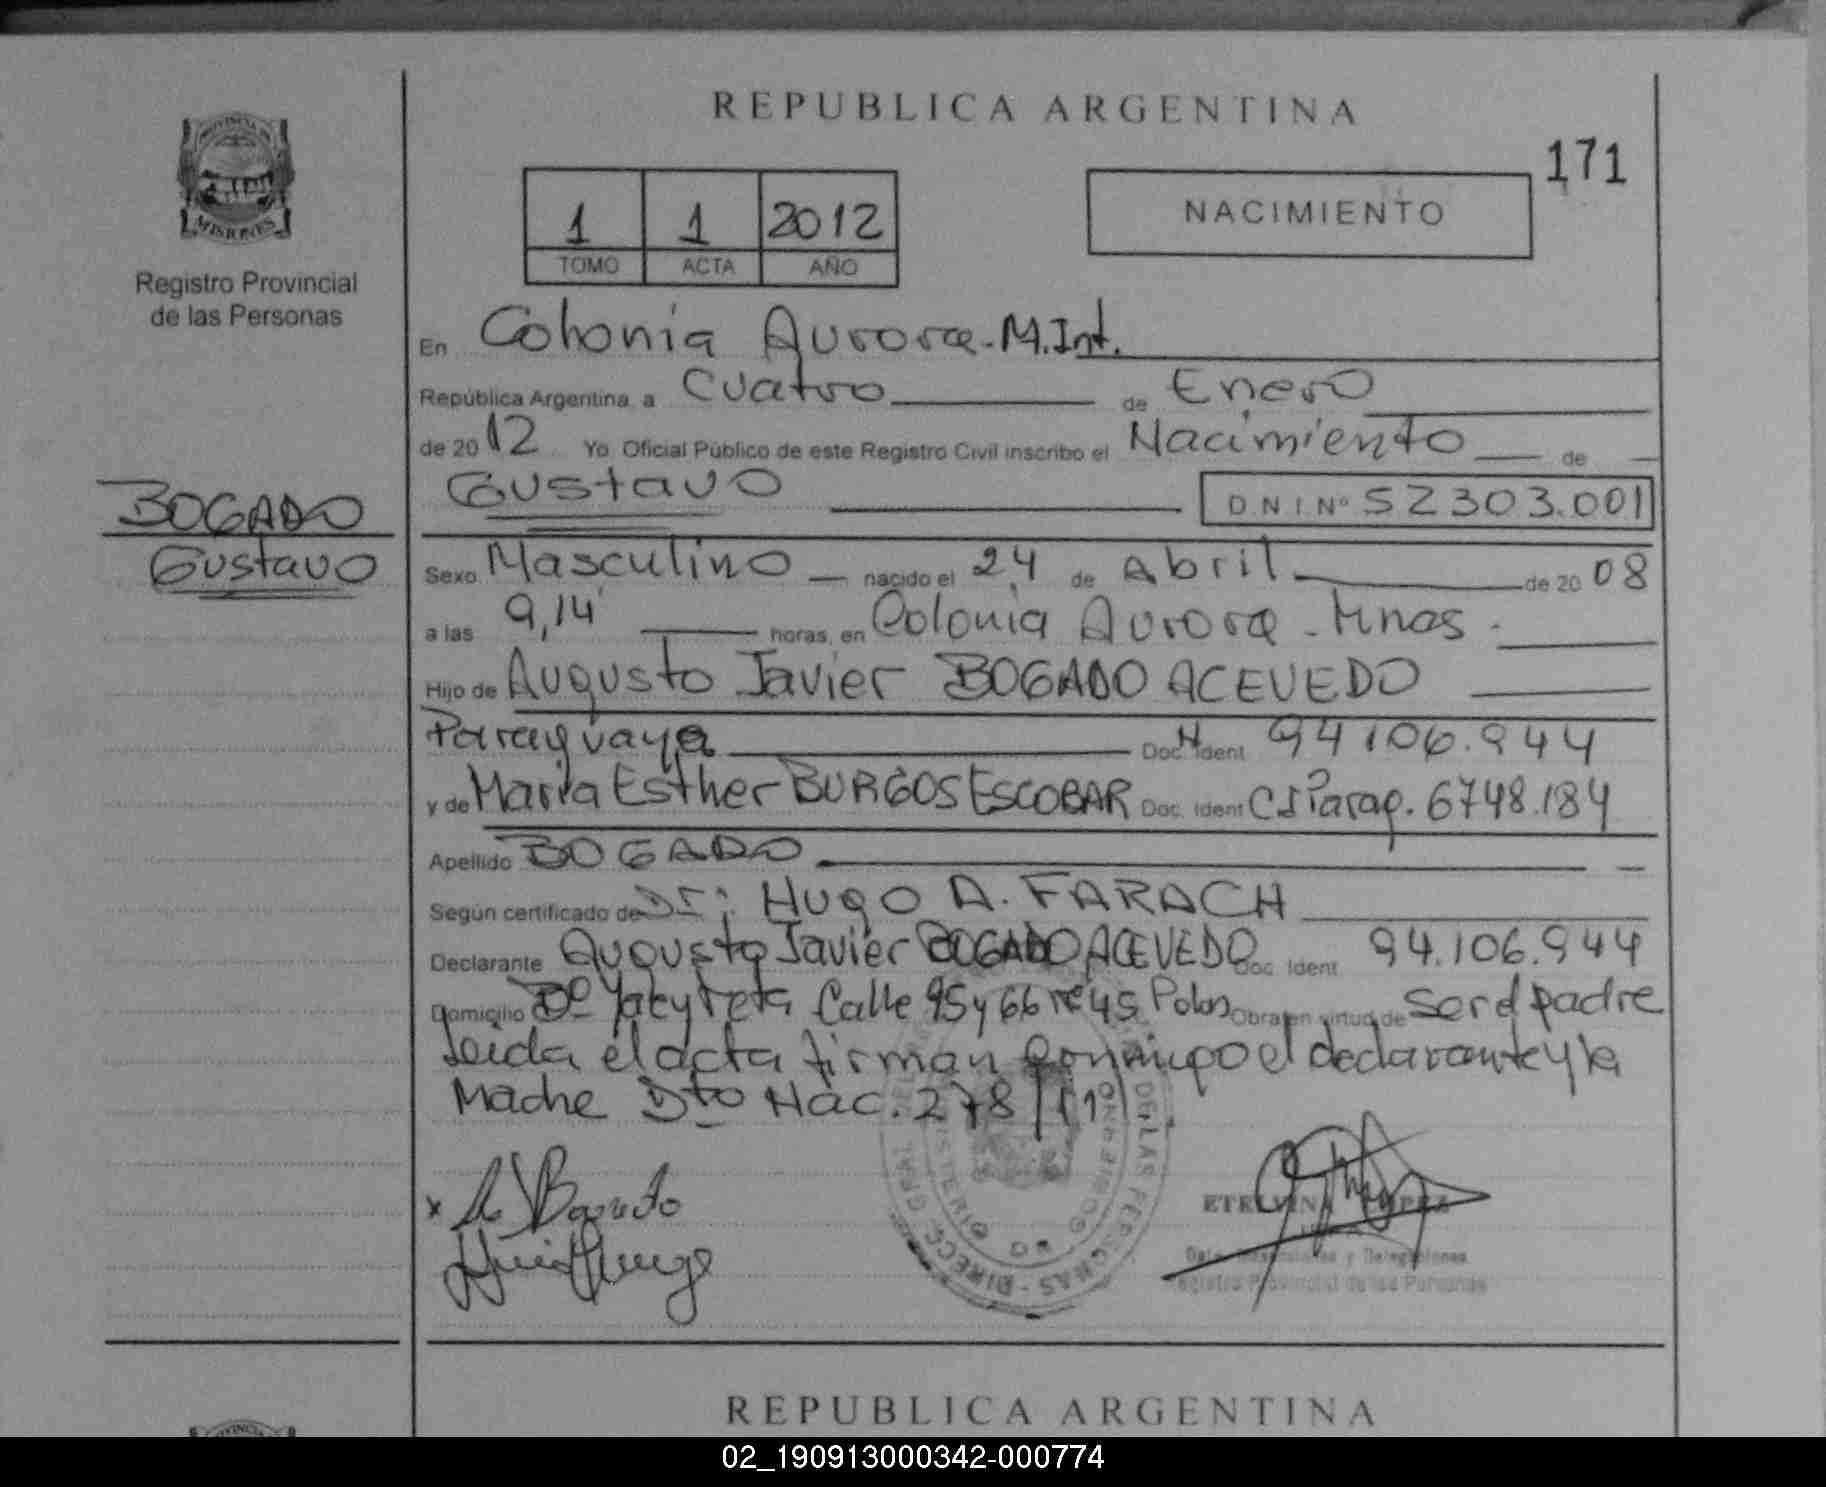 REPUBLICA ARGENTINA
171
PROVINCIA DE
MISIONES
Registro Provincial
de las Personas
1 1 2012
TOMO ACTA AÑO
NACIMIENTO
En Colonia Aurora - M.Int.
República Argentina, a Cuatro de Enero
de 2012 Yo Oficial Público de este Registro Civil inscribo el Nacimiento de
BOGADO
Gustavo
Gustavo DNI Nº 52303.001
Sexo Masculino nacido el 24 de Abril de 2008
a las 9,14 horas, en Colonia Aurora - Mnes.
Hijo de Augusto Javier BOGADO ACEVEDO
Paraguaya Doc. Ident 94106.944
y de Maria Esther BURGOS ESCOBAR Doc. Ident CI Parag. 6748.184
Apellido BOGADO
Según certificado de Dr: HUGO A. FARACH
Declarante Augusto Javier BOGADO ACEVEDO Doc Ident 94.106.944
Domicilio Bº Yacyreta Calle 95 y 66 Obra en virtud de ser el padre
Leida el acta firman conmigo el declarante y la
Madre Dto Nac. 278/11
ETELVINA LOPEZ
Registro Provincial de las Personas
REPUBLICA ARGENTINA
02_190913000342-000774